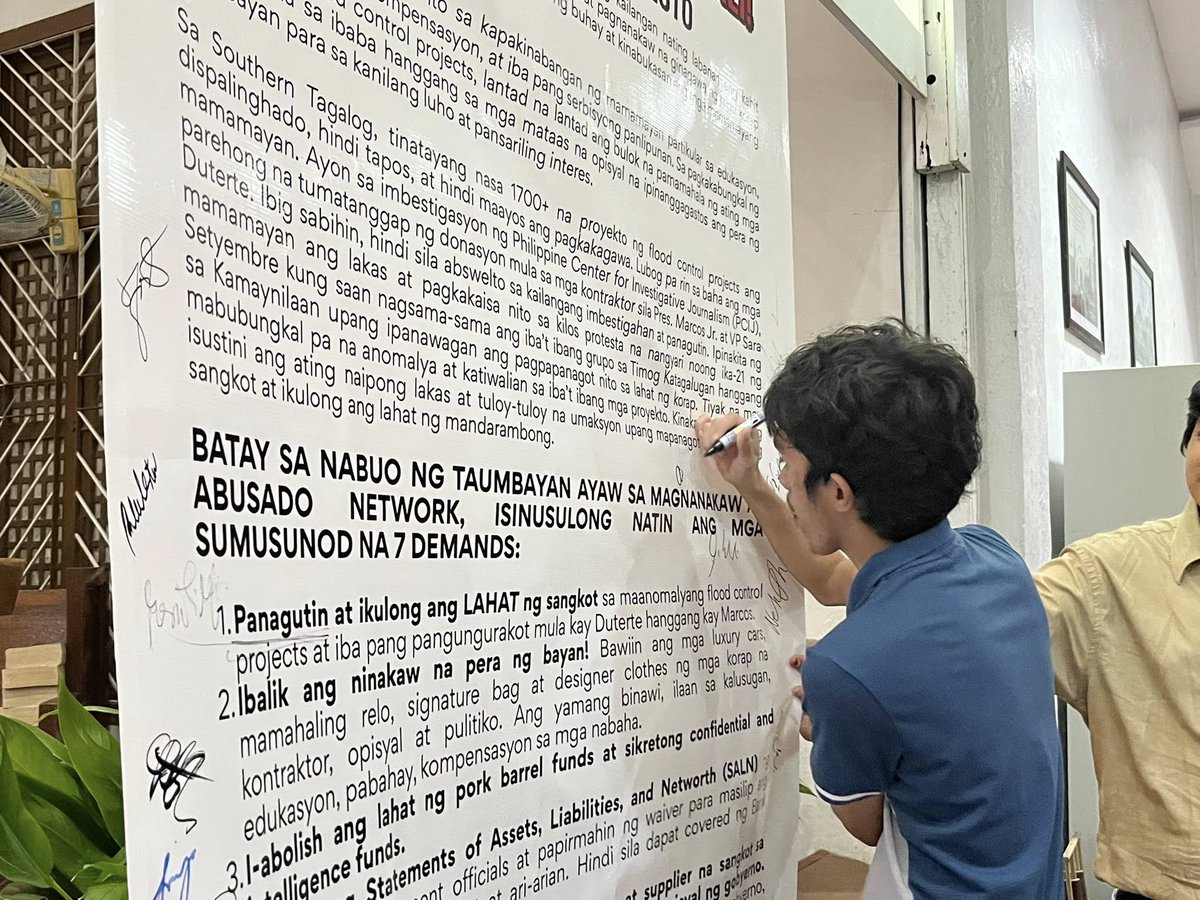 OTO
kailangan nating labanan
at pagnanakaw na ginagawa ng mga korap
ng buhay at kinabukasan ng mga
ito sa kapakinabangan ng mamamayan partikular sa edukasyon,
ompensasyon, at iba pang serbisyong panlipunan. Sa pagkakabungkal ng
control projects, lantad na lantad ang bulok na pamamahala ng ating mga
sa ibaba hanggang sa mga mataas na opisyal na ipinanggagastos ang pera ng
bayan para sa kanilang luho at pansariling interes.
Sa Southern Tagalog, tinatayang nasa 1700+ na proyekto ng flood control projects ang
dispalinghado, hindi tapos, at hindi maayos ang pagkakagawa. Lubog pa rin sa baha ang mga
mamamayan. Ayon sa imbestigasyon ng Philippine Center for Investigative Journalism (PCIJ),
parehong na tumatanggap ng donasyon mula sa mga kontraktor sila Pres. Marcos Jr. at VP Sara
Duterte. Ibig sabihin, hindi sila abswelto sa kailangang imbestigahan at panagutin. Ipinakita ng
mamamayan ang lakas at pagkakaisa nito sa kilos protesta na nangyari noong ika-21 ng
Setyembre kung saan nagsama-sama ang iba't ibang grupo sa Timog Katagalugan hanggang
sa Kamaynilaan upang ipanawagan ang pagpapanagot nito sa lahat ng korap. Tiyak na
mabubungkal pa na anomalya at katiwalian sa iba't ibang mga proyekto.
isustini ang ating naipong lakas at tuloy-tuloy na umaksyon upang mapanagot
sangkot at ikulong ang lahat ng mandarambong.
BATAY SA NABUO NG TAUMBAYAN AYAW SA MAGNANAKAW
ABUSADO NETWORK, ISINUSULONG NATIN ANG MGA
SUMUSUNOD NA 7 DEMANDS:
1. Panagutin at ikulong ang LAHAT ng sangkot sa maanomalyang flood control
projects at iba pang pangungurakot mula kay Duterte hanggang kay Marcos.
2. Ibalik ang ninakaw na pera ng bayan! Bawiin ang mga luxury cars,
mamahaling relo, signature bag at designer clothes ng mga korap na
kontraktor, opisyal at pulitiko. Ang yamang binawi, ilaan sa kalusugan,
edukasyon, pabahay, kompensasyon sa mga nabaha.
3. I-abolish ang lahat ng pork barrel funds at sikretong confidential and
intelligence funds.
Statements of Assets, Liabilities, and Networth (SALN)
ent officials at papirmahin ng waiver para masilip ang
at ari-arian. Hindi sila dapat covered ng
at supplier na sangkot sa
ng gobyerno.